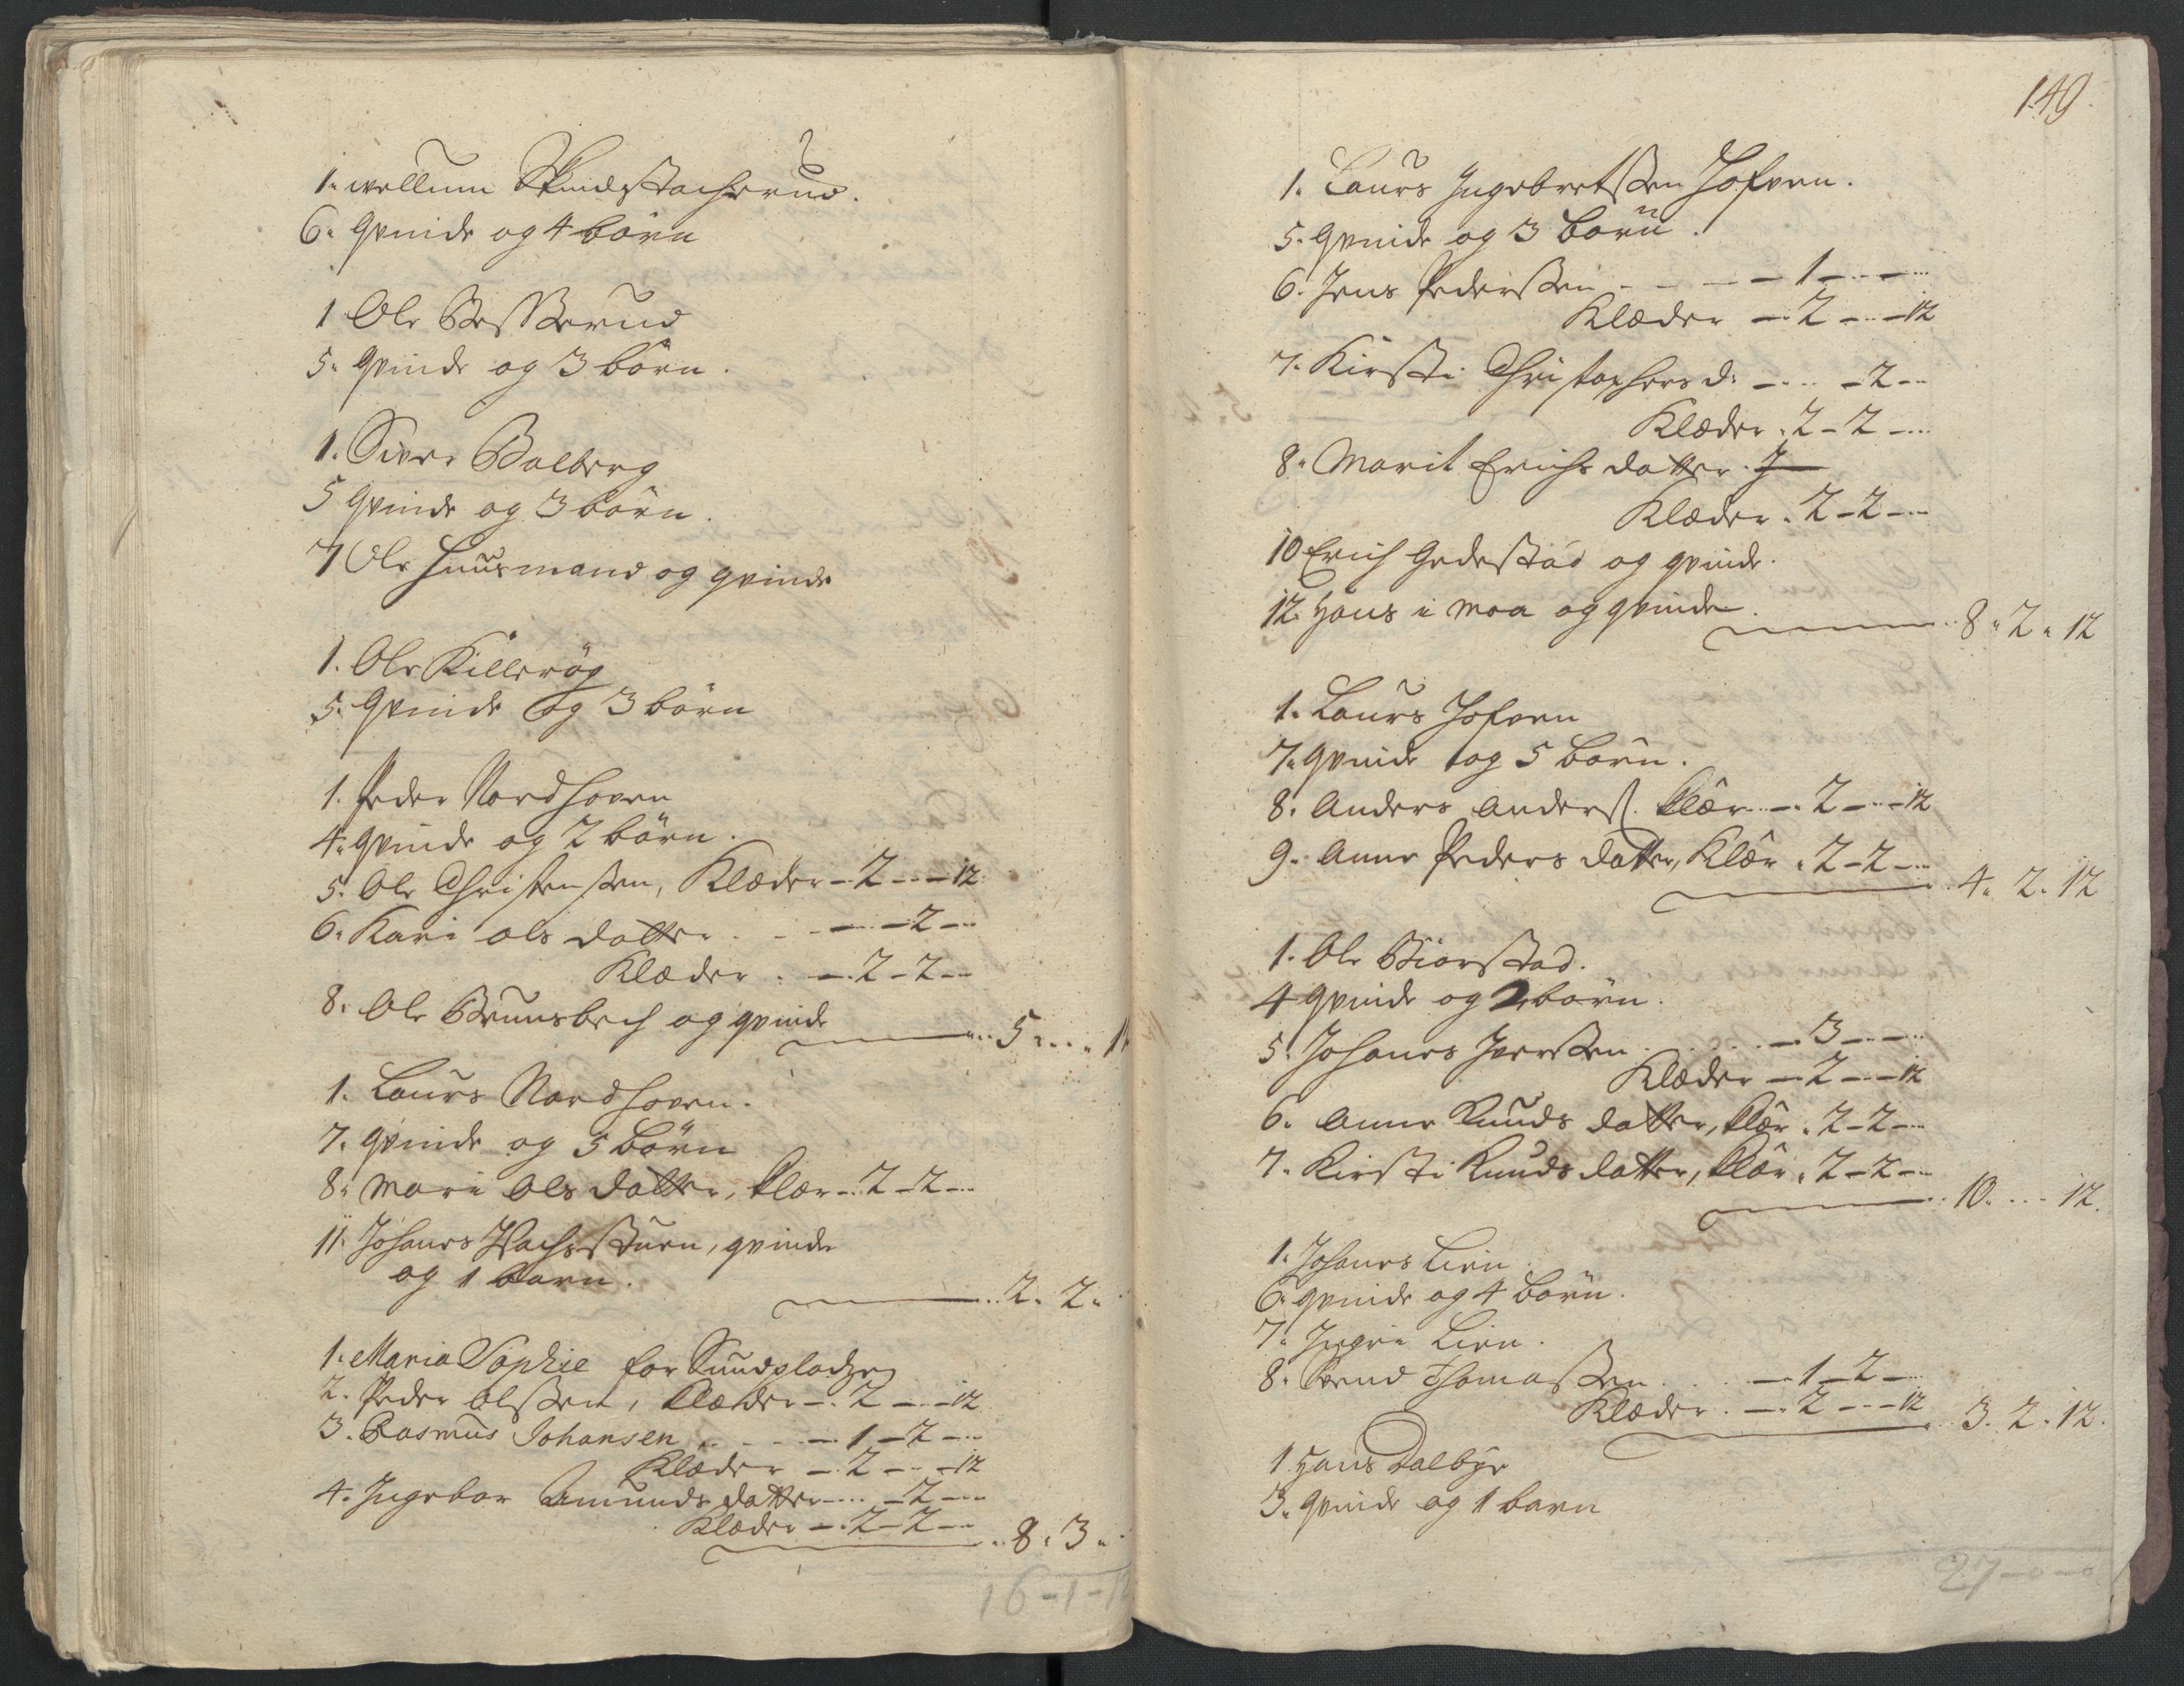 1. wellum Skindstacherud.
6. Qvinde og 4 börn
1 Ole Besserud
5. Qvinde og 3 börn.
1. Siver Balberg
5 Qvinde og 3 börn.
7 Ole Huusmand og qvinde
1. Ole Killerög
5. Qvinde og 3 börn
1. Peder Nordhoven
4. qvinde og 2 börn.
5. Ole Christensen, Klæder - 2 - - 12
6. Kari ols datter - - - 2 -
Klæder . - 2 - 2 -
8. Ole Bruunsbech og qvinde
5 . . . 1
1. Laurs Nordhoven.
7. Qvinde og 5 börn
8. Mari Ols datter, klær - 2 - 2 -
11. Johanes Wachssturn, qvinde
og 1 barn.
2. 2.
1. Maria Sophie for Sundpladzen
2. Peder olssen, klæder - 2 - - 12
3. Rasmus Johansen . . - 1 - 2 -
Klæder - 2 - - 12
4. Ingebor Amunds datter - - 2 -
Klæder - 2 - 2 -
8. 3.
16 - 1 - 12
149.
1. Laurs Ingebretssen Hofven.
5. Qvinde og 3 börn.
6. Jens Pederssen - - - 1 - -
Klæder - 2 - - 12
7. Kirsti Christophers d. - - 2 -
Klæder . 2 - 2 -
8. Marit Erichs datter. 1
Klæder . 2 - 2 -
10 Erich Gedestad og qvinde.
12. Hans i moa og qvinde.
8. 2. 12
1. Laurs Hofven
7. qvinde og 5 börn.
8. Anders Anders. klær - 2 - - 12
9. Anne Peders datter, Klær . 2 - 2 -
4. 2. 12
1. Ole Biørstad.
4 qvinde og 2 börn.
5. Johanes Iverssen . . - 3 - -
Klæder - 2 - - 12
6. Anne Knuds datter, klær . 2 - 2 -
7. Kirsti Knuds datter, klær . 2 - 2 -
10. - - 12.
1. Johanes Lien.
6. qvinde og 4 börn.
7. Ingri Lien.
8. Svend Thomassen . . - 1 - 2 -
Klæder . - 2 - - 12
3. 2. 12.
1. Hans Dalbye
3. qvinde og 1 barn
27 - 0 - 0